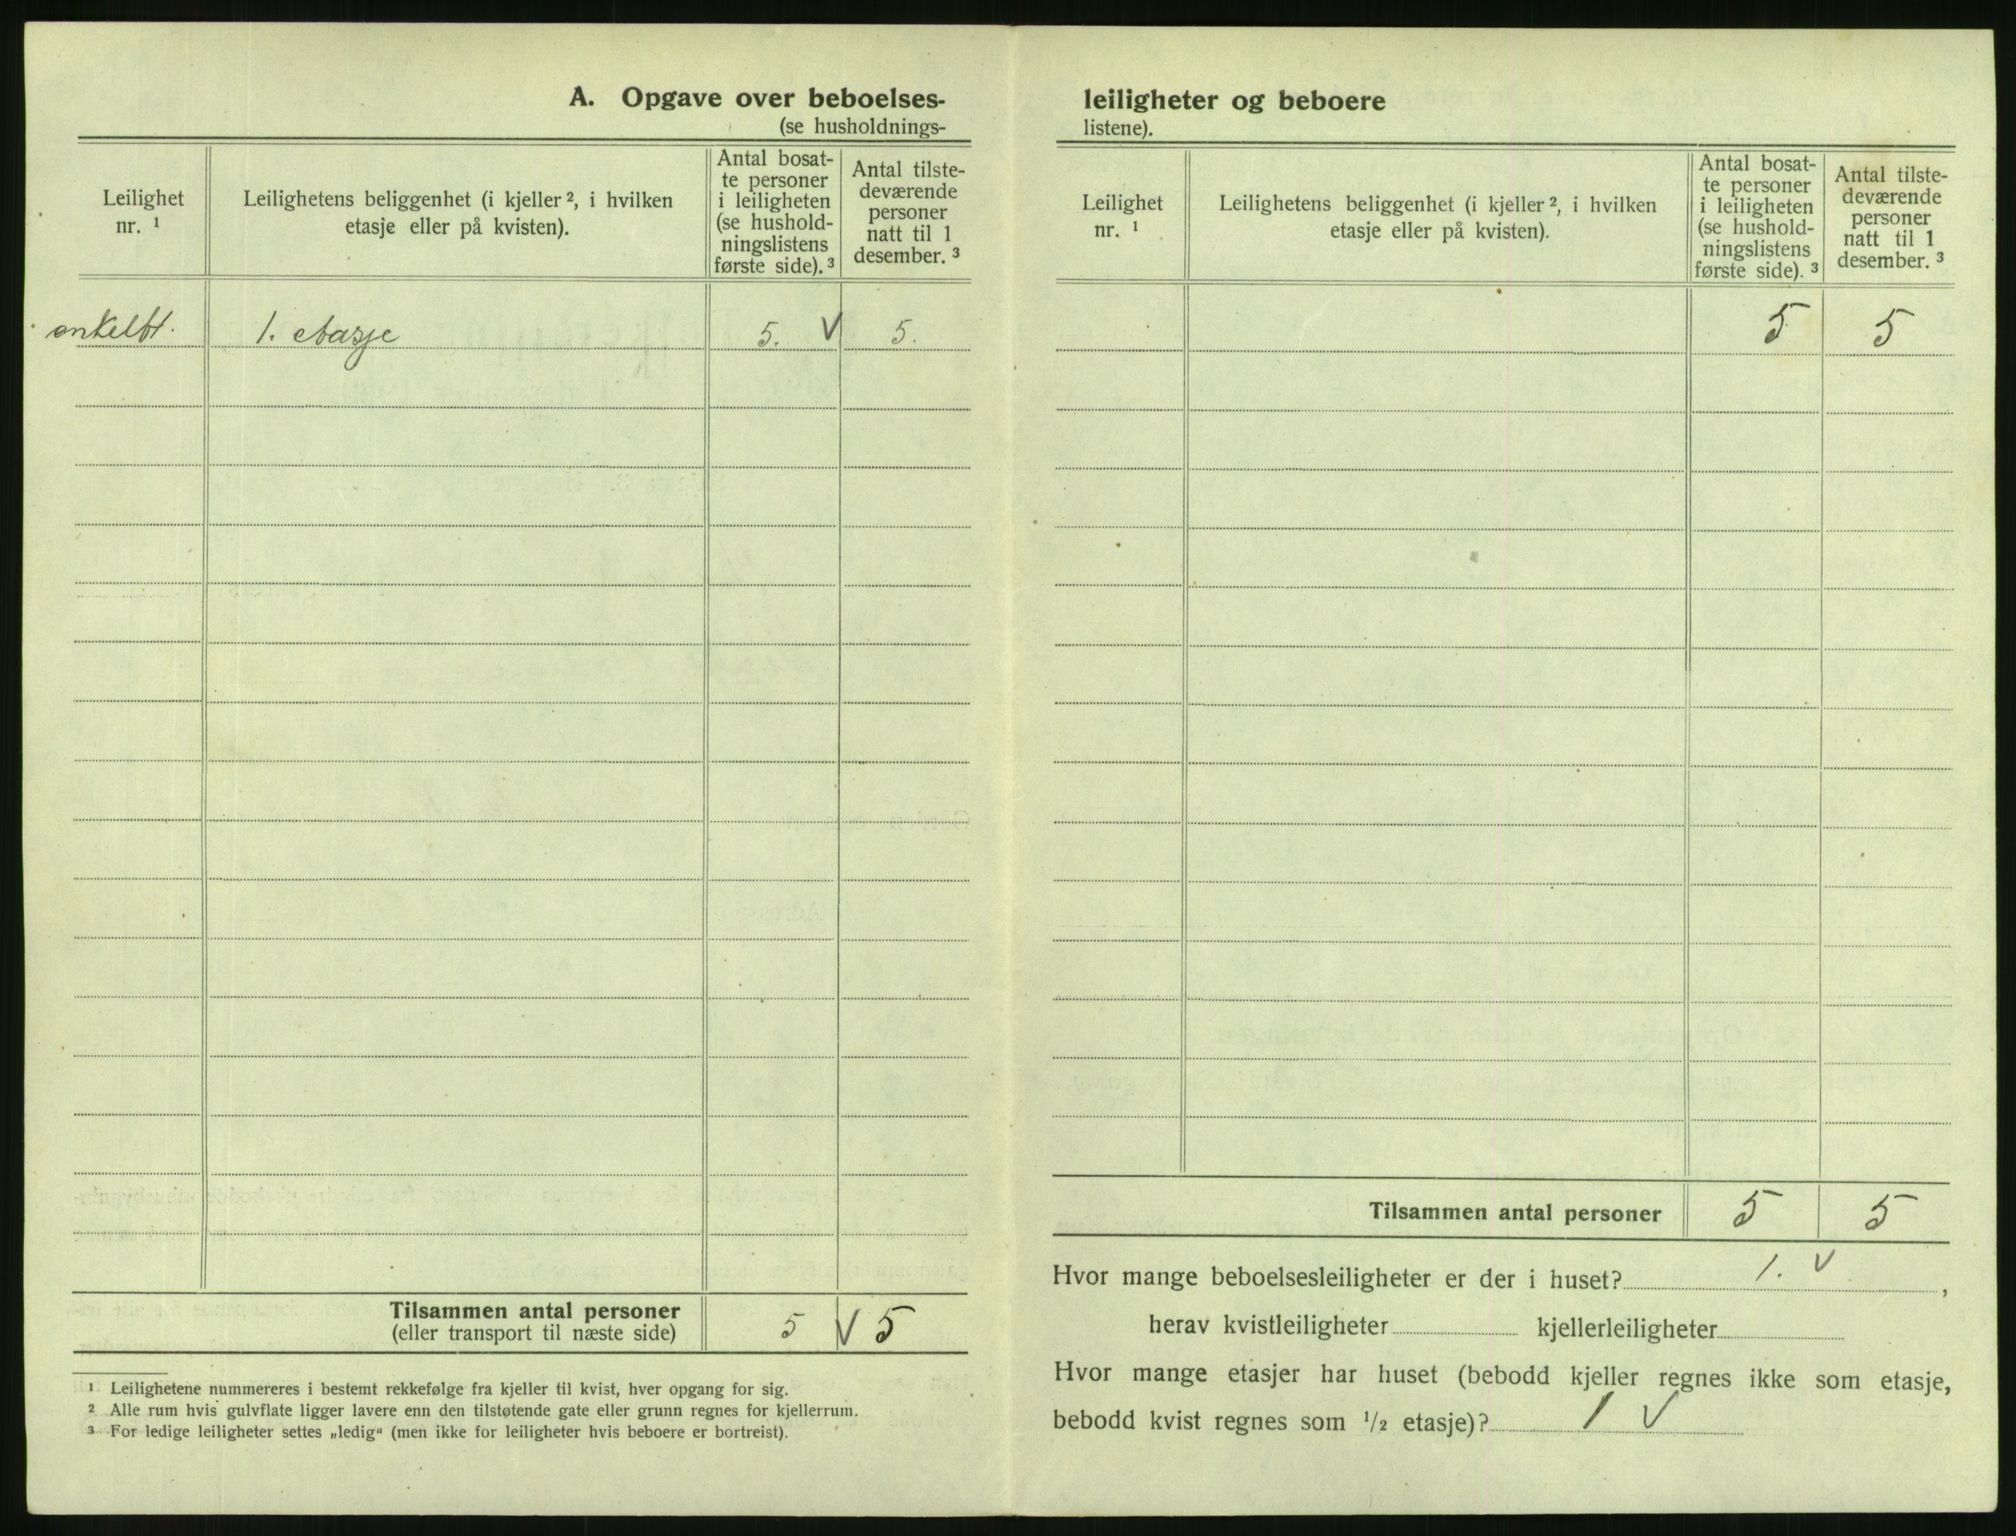 A. Opgave over beboelses-
(se husholdnings-
Leilighet
nr. ¹
Leilighetens beliggenhet (i kjeller ², i hvilken
etasje eller på kvisten).
Antal bosat-
te personer
i leiligheten
(se hushold-
ningslistens
første side). ³
Antal tilste-
deværende
personer
natt til 1
desember. ³
enkelt. 1. etasje 5. V 5.
Tilsammen antal personer
(eller transport til næste side) 5 V 5
¹ Leilighetene nummereres i bestemt rekkefølge fra kjeller til kvist, hver opgang for sig.
² Alle rum hvis gulvflate ligger lavere enn den tilstøtende gate eller grunn regnes for kjellerrum.
³ For ledige leiligheter settes „ledig“ (men ikke for leiligheter hvis beboere er bortreist).
leiligheter og beboere
listene).
Leilighet
nr. ¹
Leilighetens beliggenhet (i kjeller ², i hvilken
etasje eller på kvisten).
Antal bosat-
te personer
i leiligheten
(se hushold-
ningslistens
første side). ³
Antal tilste-
deværende
personer
natt til 1
desember. ³
5 5
Tilsammen antal personer 5 5
Hvor mange beboelsesleiligheter er der i huset? 1. V ,
herav kvistleiligheter kjellerleiligheter
Hvor mange etasjer har huset (bebodd kjeller regnes ikke som etasje,
bebodd kvist regnes som ½ etasje)? 1 V